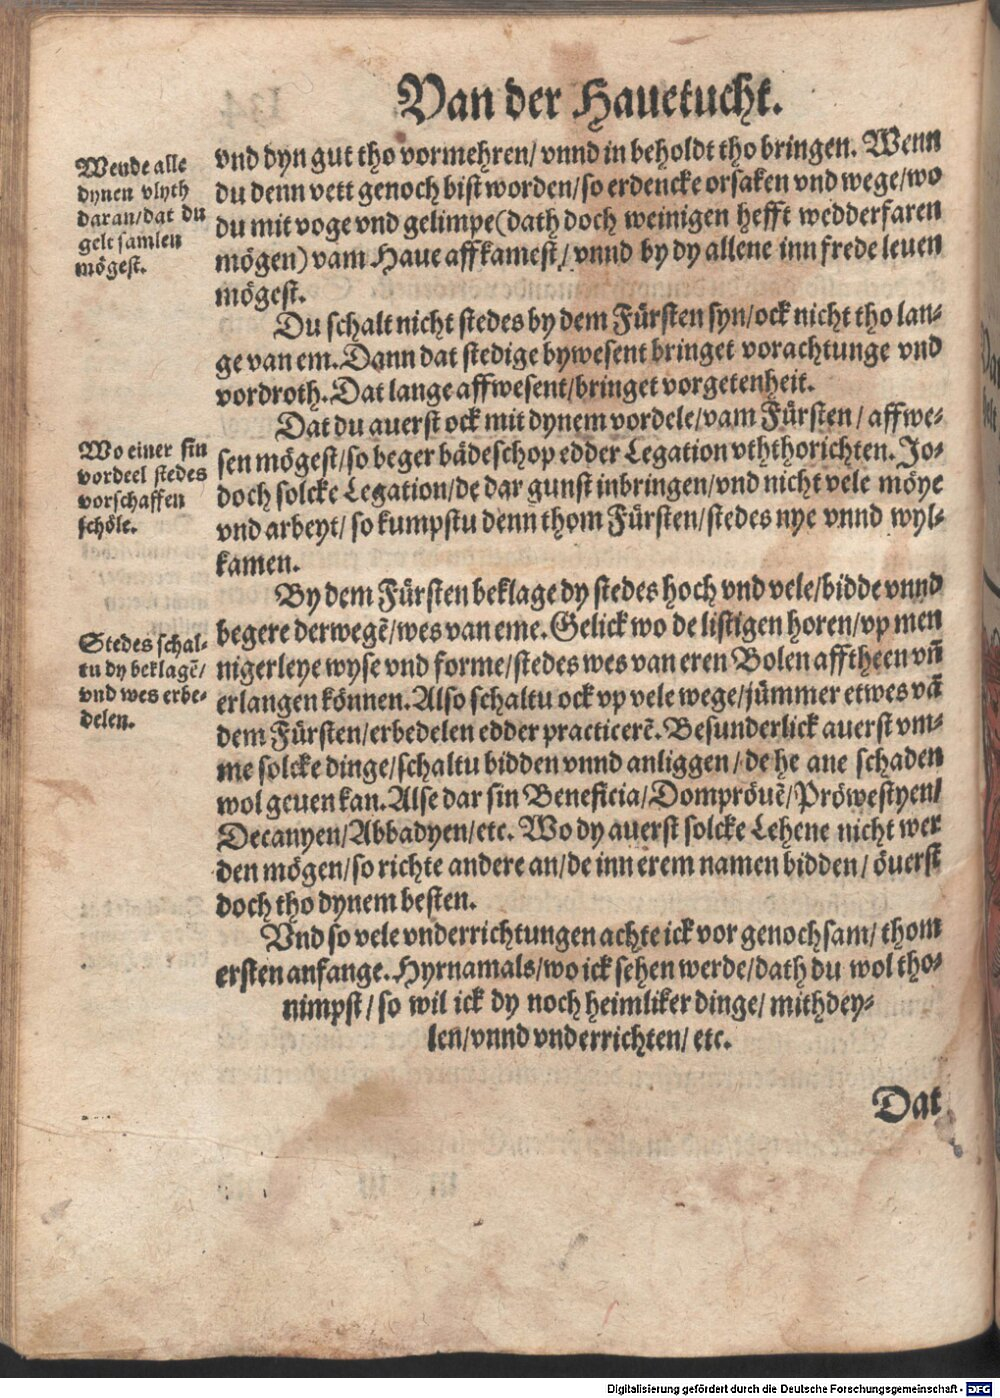 Van der Hauetucht.
Wende alle
dynen vlyth
daran/dat du
gelt samlen
mögest.
vnd dyn gut tho vormehren/ vnnd in beholdt tho bringen. Wenn
du denn vett genoch bist worden/so erdencke orsaken vnd wege/wo
du mit voge vnd gelimpe(dath doch weinigen hefft wedderfaren
mögen) vam Haue affkamest/ vnnd by dy allene inn frede leuen
mögest.
Du schalt nicht stedes by dem Fürsten syn/ock nicht tho lan-
ge van em. Dann dat stedige bywesent bringet vorachtunge vnd
vordroth. Dat lange affwesent/bringet vorgetenheit.
Wo einer sin
vordeel stedes
vorschaffen
schöle.
Dat du auerst ock mit dynem vordele/vam Fürsten/ affwe-
sen mögest/so beger bädeschop edder Legation vththorichten. Jo-
doch solcke Legation/de dar gunst inbringen/vnd nicht vele möye
vnd arbeyt/ so kumpstu denn thom Fürsten/stedes nye vnnd wyl-
kamen.
Stedes schal-
tu dy beklagē/
vnd wes erbe-
delen.
By dem Fürsten beklage dy stedes hoch vnd vele/bidde vnnd
begere derwegē/wes van eme. Gelick wo de listigen horen/vp men
nigerleye wyse vnd forme/stedes wes van eren Bolen afftheen vñ
erlangen können. Also schaltu ock vp vele wege/jümmer etwes vā
dem Fürsten/erbedelen edder practicerē. Besunderlick auerst vm-
me solcke dinge/schaltu bidden vnnd anliggen/de he ane schaden
wol geuen kan. Alse dar sin Beneficia/Dompröuē/Pröwestyen/
Decanyen/Abbadyen/etc. Wo dy auerst solcke Lehene nicht wer
den mögen/so richte andere an/de inn erem namen bidden/ öuerst
doch tho dynem besten.
Vnd so vele vnderrichtungen achte ick vor genochsam/ thom
ersten anfange. Hyrnamals/wo ick sehen werde/dath du wol tho-
nimpst/so wil ick dy noch heimliker dinge/ mithdey-
len/vnnd vnderrichten/ etc.
Dat
Digitalisierung gefördert durch die Deutsche Forschungsgemeinschaft - DFG